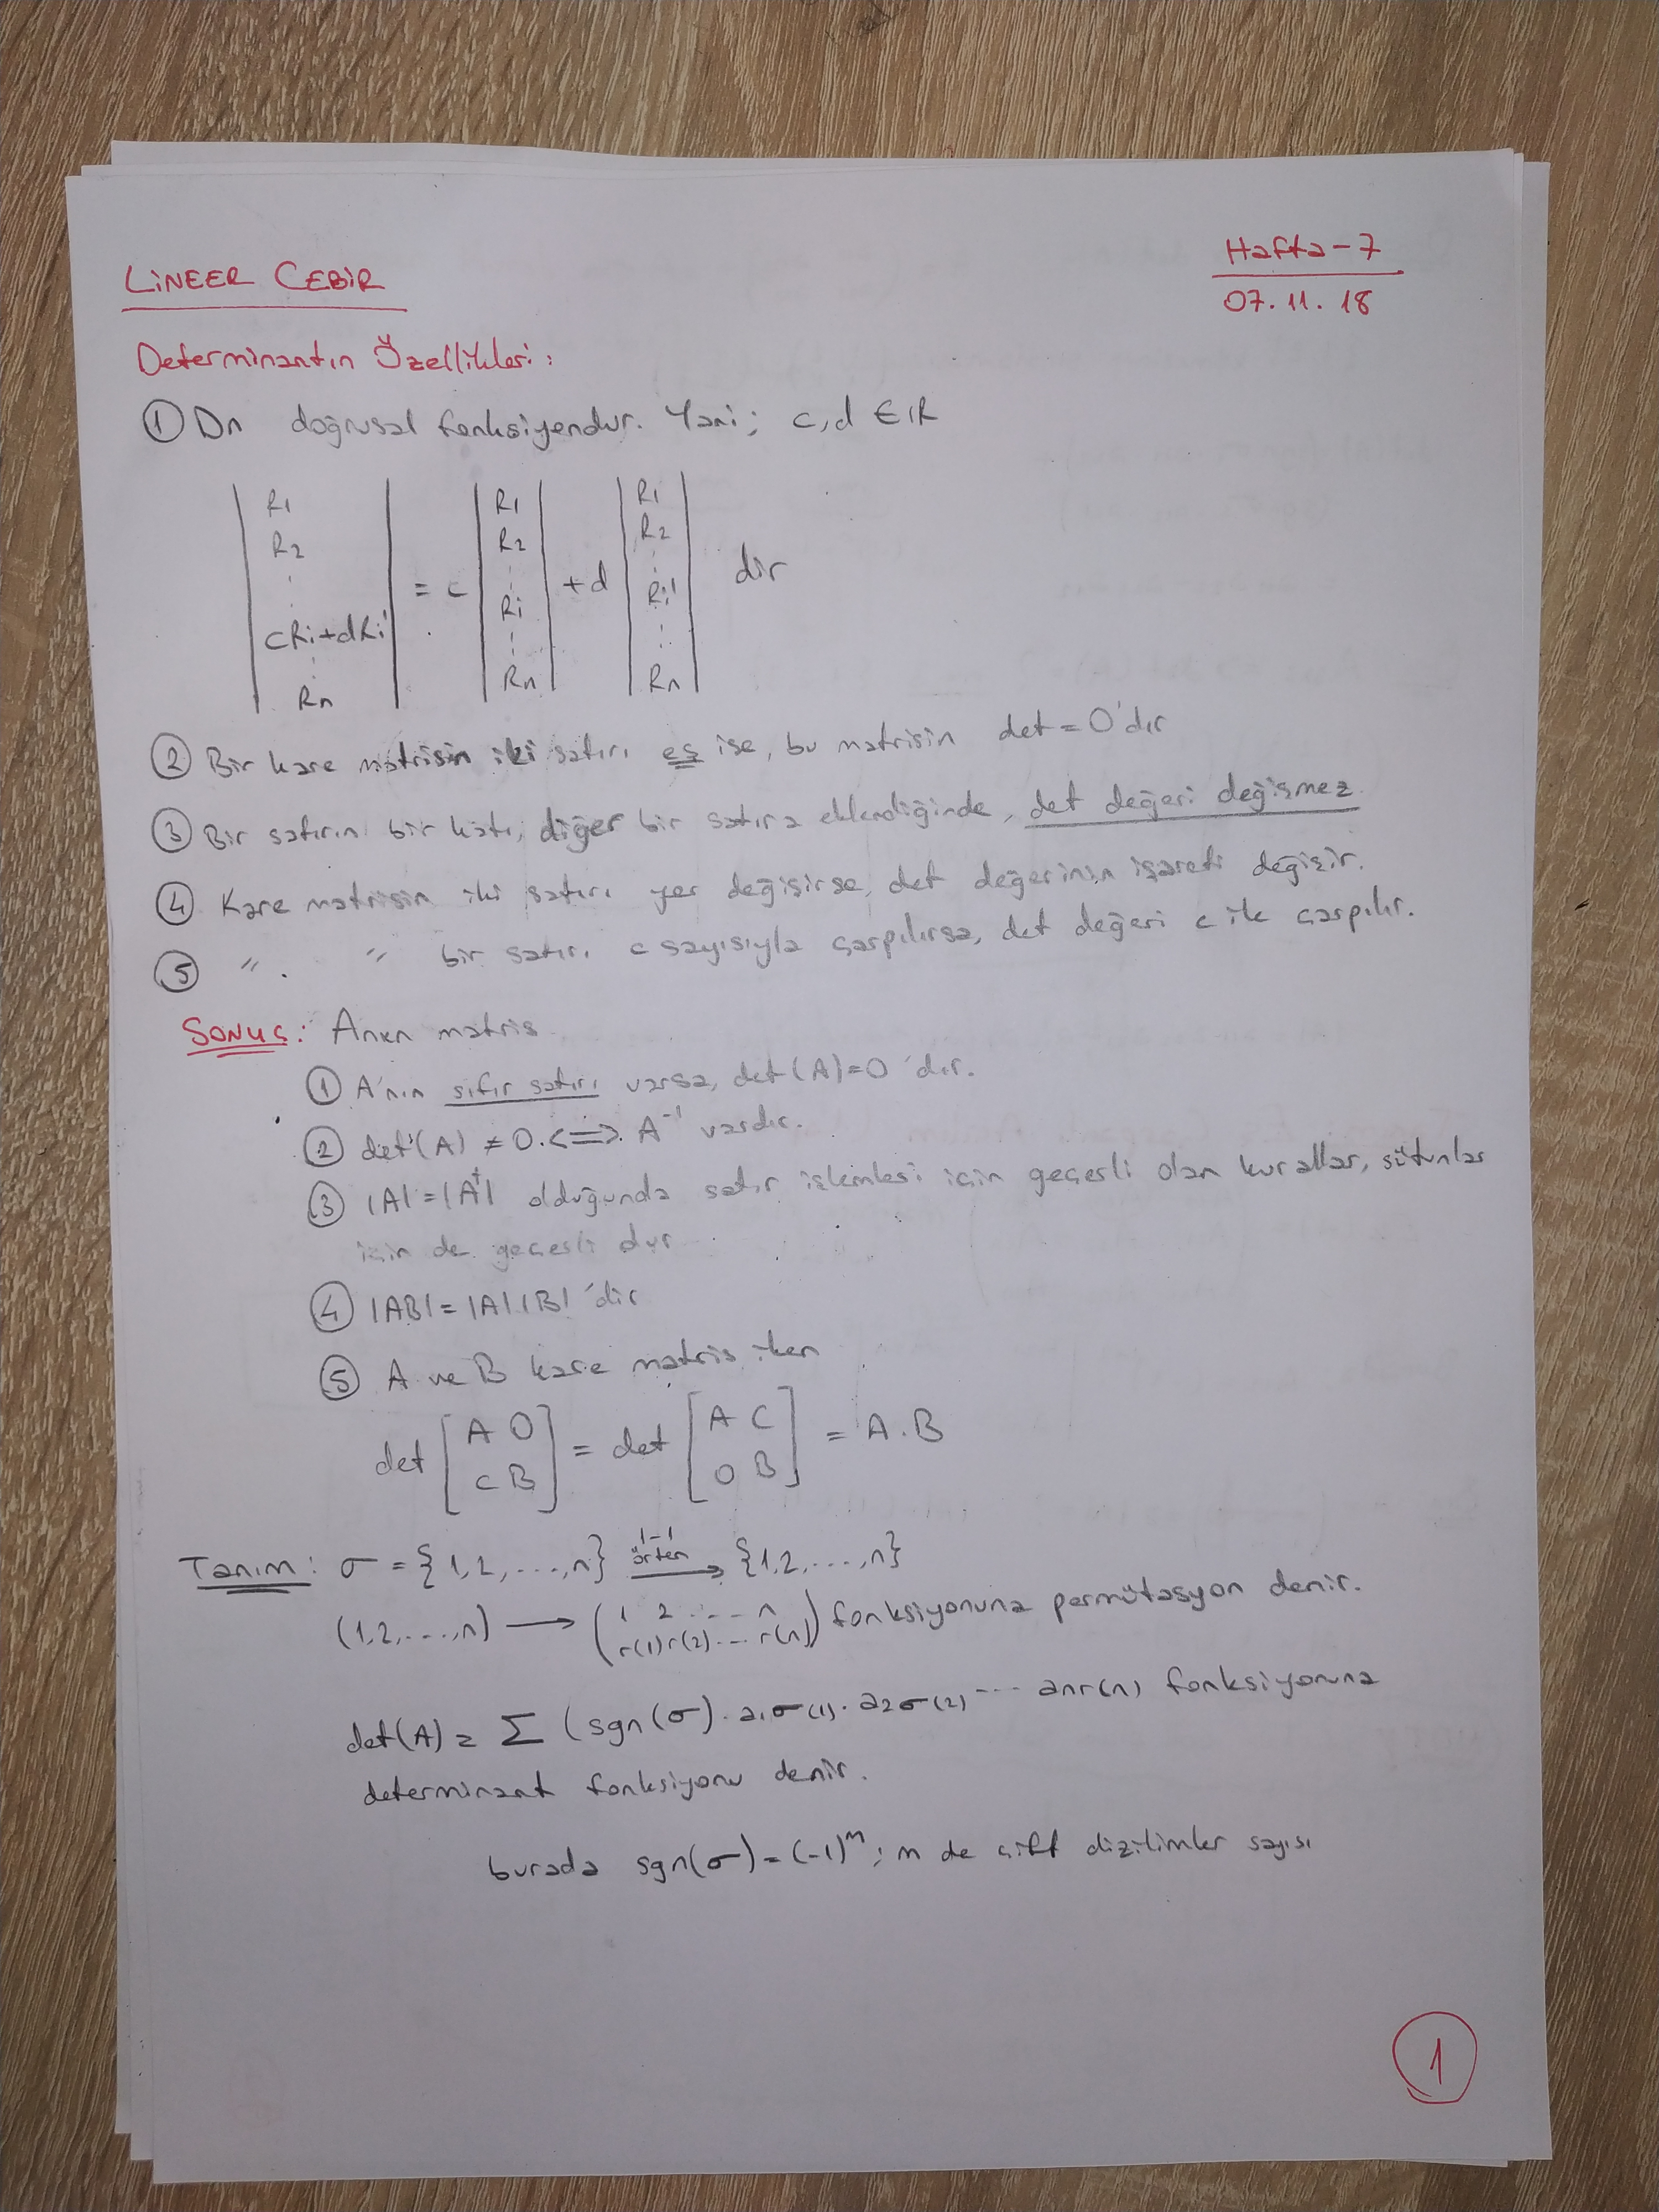 LİNEER CEBİR
Hafta-7
07.11.18
Determinantın Özellikleri:
① Dn doğrusal fonksiyondur. Yani; c,d ∈ IR
| R1 R2 ⋮ cRi+dRi' ⋮ Rn | = c | R1 R2 ⋮ Ri ⋮ Rn | + d | R1 R2 ⋮ Ri' ⋮ Rn | dır
② Bir kare matrisin iki satırı eş ise, bu matrisin det=0'dır
③ Bir satırın bir katı, diğer bir satıra eklendiğinde, det değeri değişmez.
④ Kare matrisin iki satırı yer değişirse, det değerinin işareti değişir.
⑤ " " bir satırı c sayısıyla çarpılırsa, det değeri c ile çarpılır.
SONUÇ: Anxn matris
① A'nın sıfır satırı varsa, det(A)=0'dır.
② det(A) ≠ 0 <=> A⁻¹ vardır.
③ |A|=|Aᵗ| olduğunda satır işlemleri için geçerli olan kurallar, sütunlar
için de geçerlidir
④ |AB|=|A|.|B|'dir
⑤ A ve B kare matris iken
det [ A O C B ] = det [ A C O B ] = A.B
Tanım: σ = {1,2,...,n} 1-1 örten → {1,2,...,n}
(1,2,...,n) → (1 2 ... n r(1) r(2) ... r(n)) fonksiyonuna permütasyon denir.
det(A) = Σ (sgn(σ). a1σ(1). a2σ(2) ... anr(n) fonksiyonuna
determinant fonksiyonu denir.
burada sgn(σ)=(-1)ᵐ; m de çift dizilimler sayısı
1